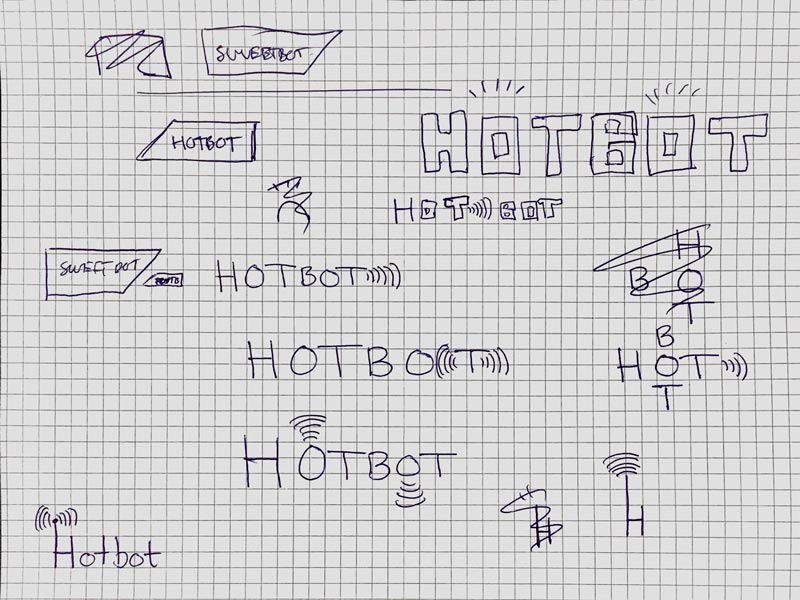 SWEETBOT
HOTBOT
HOTBOT
HOTBOT
SWEETBOT
HOTBOT
H
BO
T
HOTBOT
B
HOT
T
HOTBOT
H
H
Hotbot